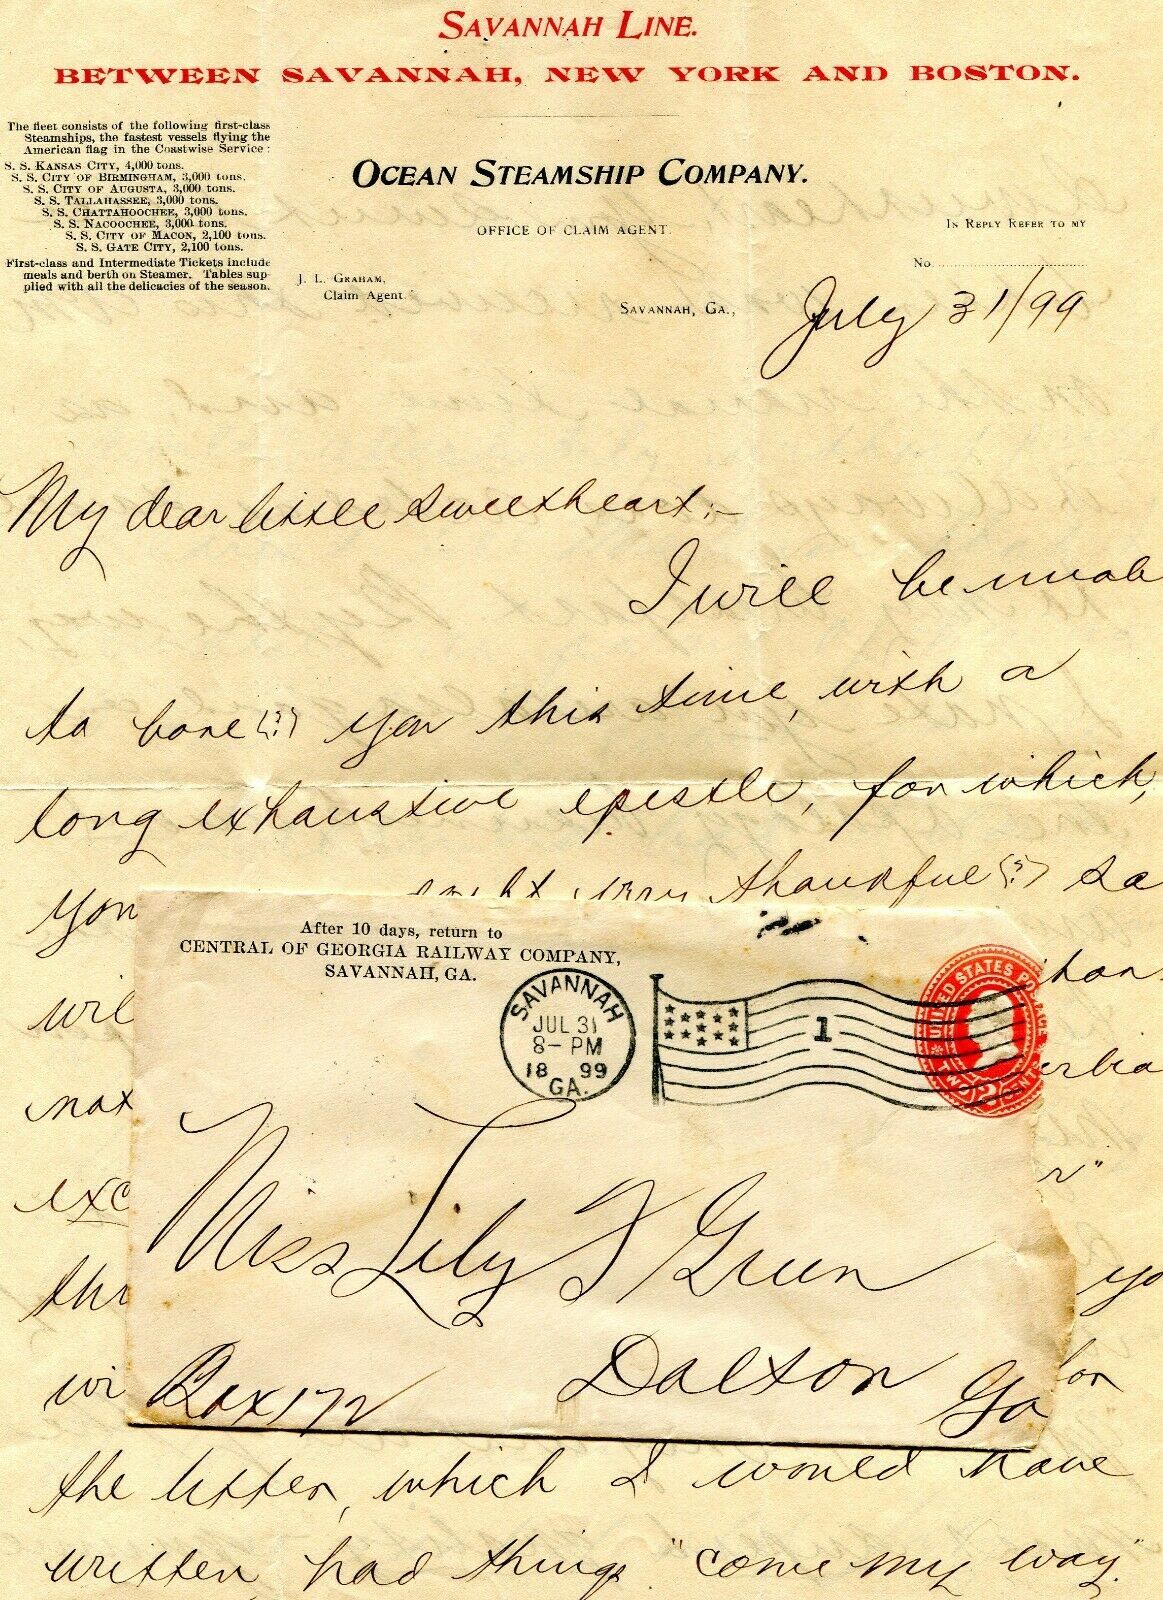 SAVANNAH LINE.
BETWEEN SAVANNAH, NEW YORK AND BOSTON.
The fleet consists of the following first-class
Steamships, the fastest vessels flying the
American flag in the Coastwise Service:
S. S. KANSAS CITY, 4,000 tons.
S. S. CITY OF BIRMINGHAM, 3,000 tons.
S. S. CITY OF AUGUSTA, 3,000 tons.
S. S. TALLAHASSEE, 3,000 tons.
S. S. CHATTAHOOCHEE, 3,000 tons.
S. S. NACOOCHEE, 3,000 tons.
S. S. CITY OF MACON, 2,100 tons.
S. S. GATE CITY, 2,100 tons.
First-class and Intermediate Tickets include
meals and berth on Steamer. Tables sup-
plied with all the delicacies of the season.
OCEAN STEAMSHIP COMPANY.
OFFICE OF CLAIM AGENT.
IN REPLY REFER TO MY
No.
J. L. GRAHAM,
Claim Agent.
SAVANNAH, GA., July 31/99
My dear little sweetheart:-
I will be unab
to bore (?) you this time, with a
long exhaustive epistle, for which,
you thankful (?) so
wil
not
exc
thr yo
wi for
the letter, which I would have
written, had things "come my way."
After 10 days, return to
CENTRAL OF GEORGIA RAILWAY COMPANY,
SAVANNAH, GA.
SAVANNAH
JUL 31
8-PM
18 99
GA.
1
UNITED STATES
TWO 2
Miss Lily F Green
Dalton
Ga
Box 172